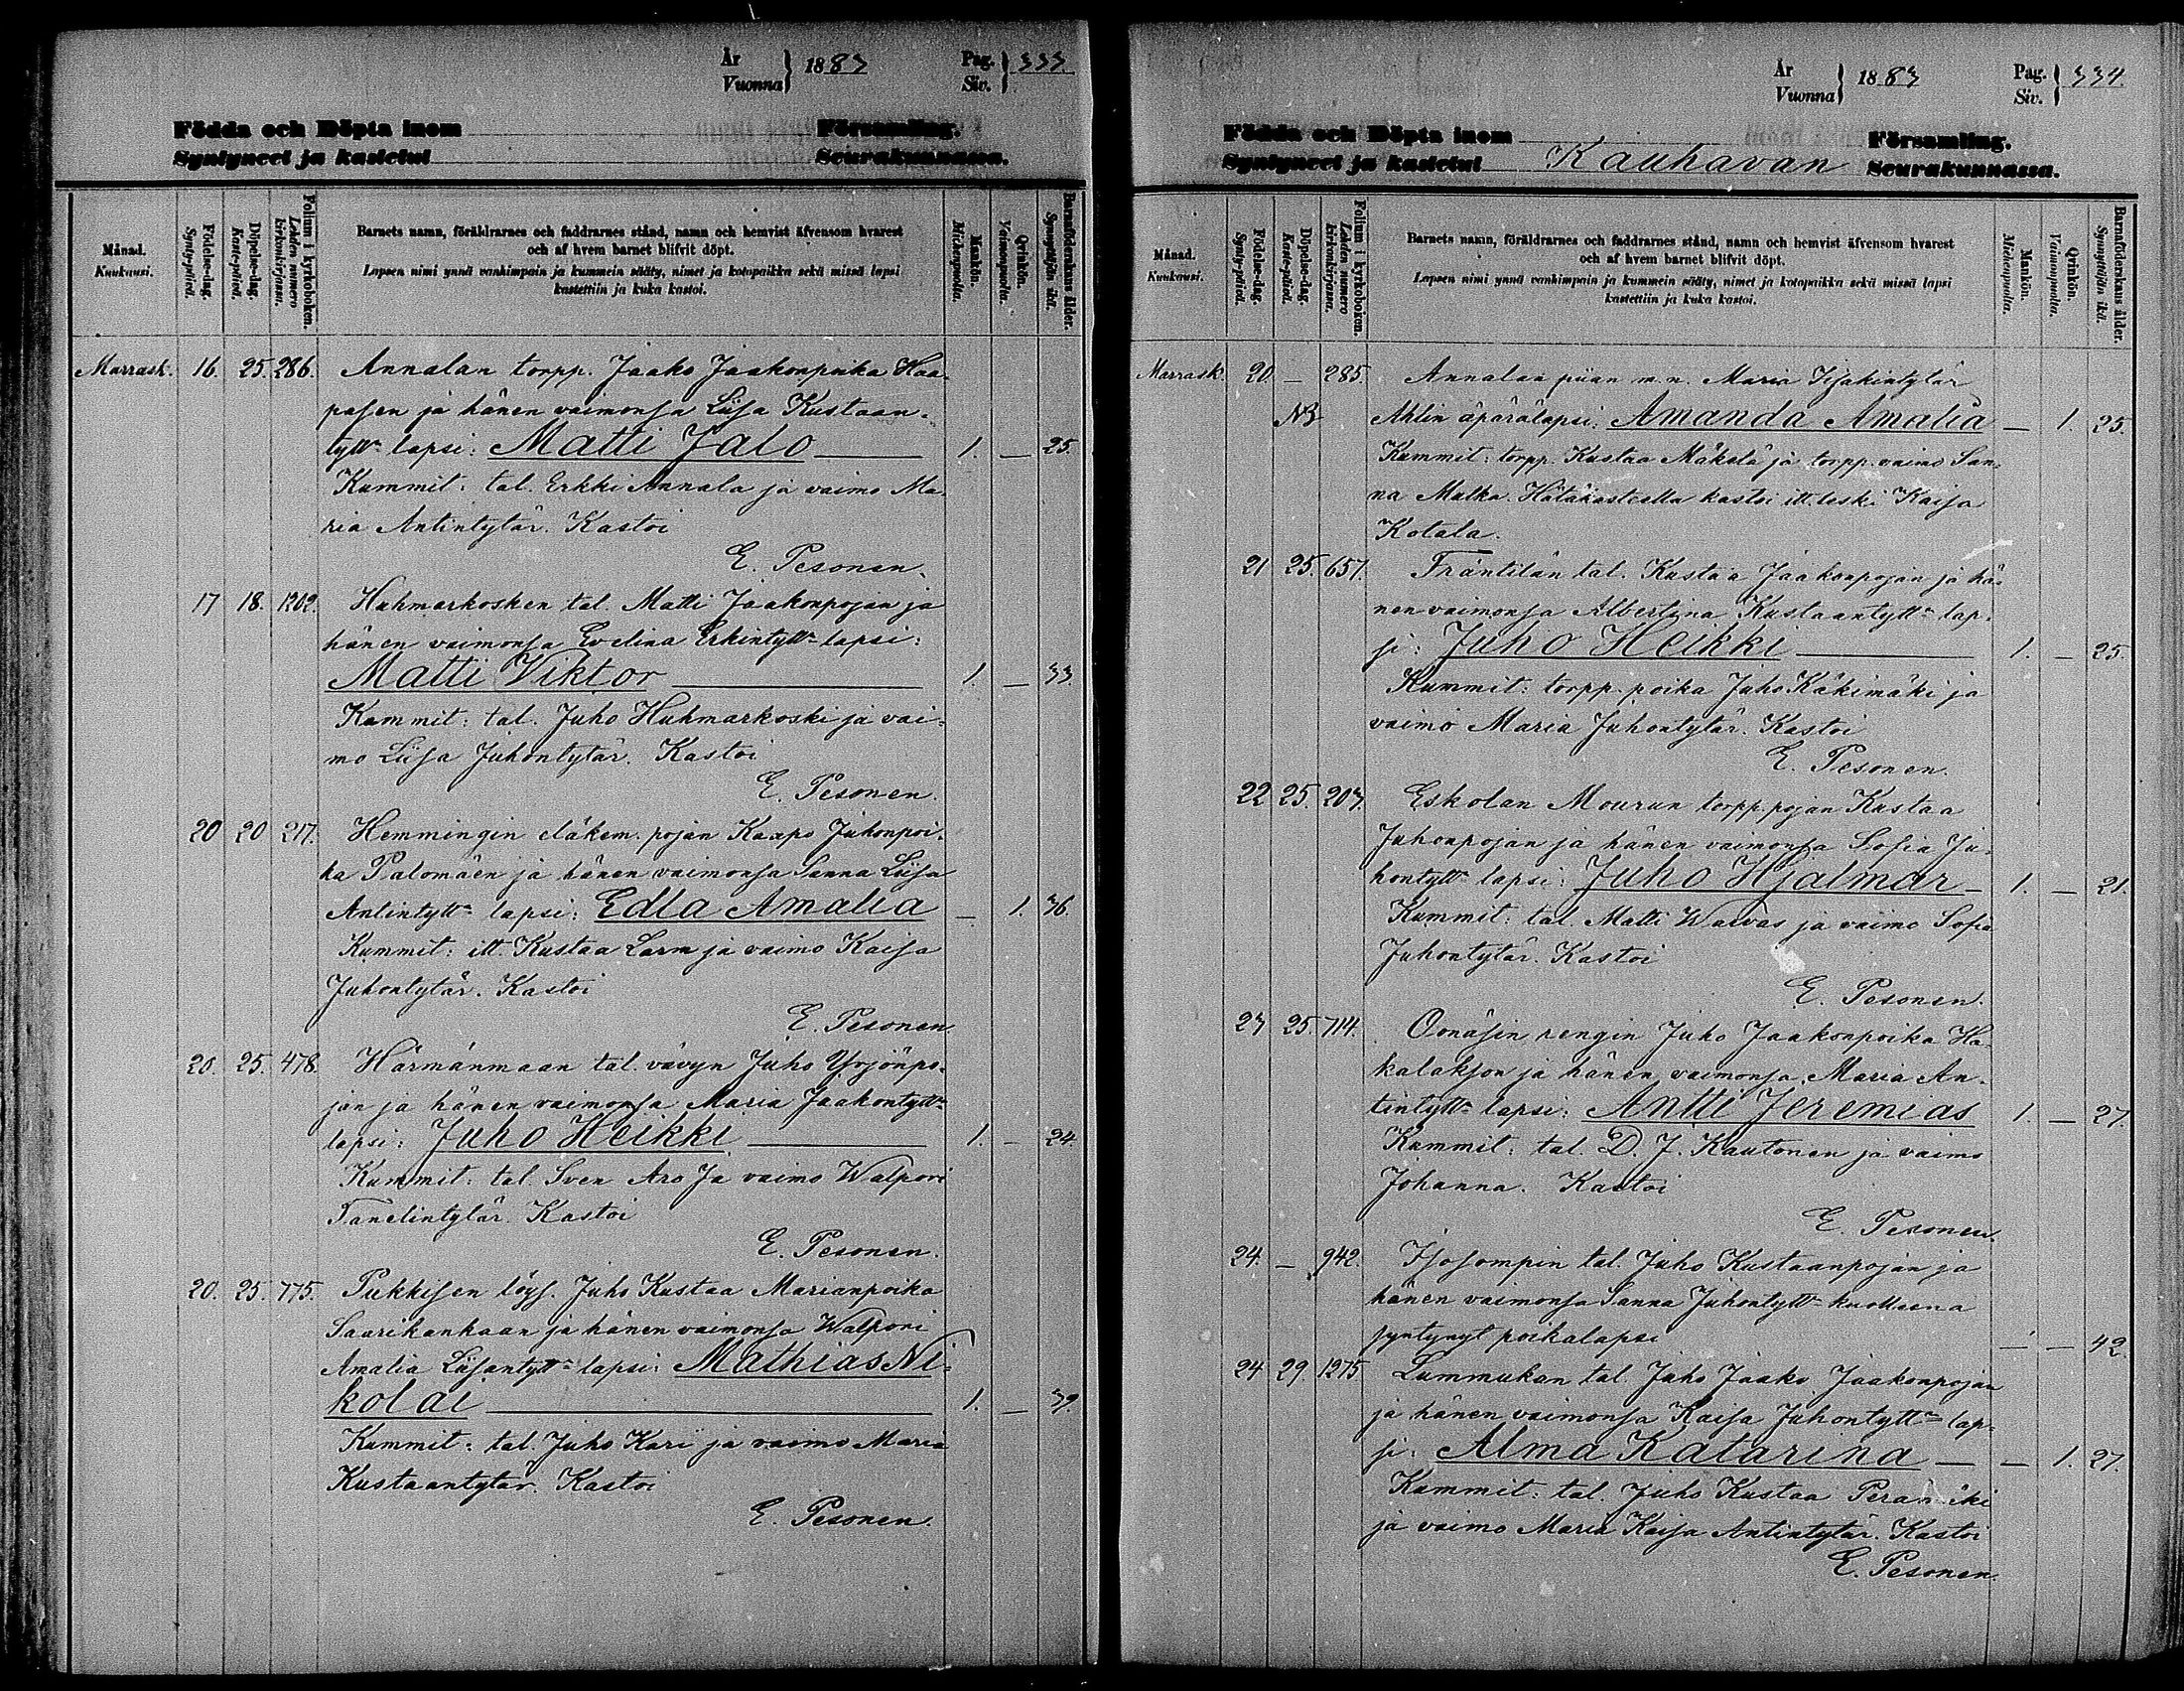 År
Vuonna } 1883 Pag.
Siv. } 333.
Födda och Döpta inom Församling.
Syntyneet ja kastetut Seurakunnassa.
Månad.
Kuukausi.
Födelse-dag.
Synty-päivä.
Döpelse-dag.
Kaste-päivä.
Folium i kyrkoboken.
Lehden numero kirkonkirjassa.
Barnets namn, föräldrarnes och faddrarnes stånd, namn och hemvist äfvensom hvarest
och af hvem barnet blifvit döpt.
Lapsen nimi ynnä vanhimpain ja kummein sääty, nimet ja kotopaikka sekä missä lapsi
kastettiin ja kuka kastoi.
Mankön.
Miehenpuolta.
Qvinkön.
Vaimonpuolta.
Barnaföderskans ålder.
Synnyttäjän ikä.
Marrask. 16. 25. 286. Annalan torpp. Jaako Jaakonpoika Haa-
pasen ja hänen vaimonsa Liisa Kustaan-
tytt. lapsi: Matti Jalo 1. — 25.
Kummit: tal. Erkki Annala ja vaimo Ma-
ria Antintytär. Kastoi
E. Pesonen.
17 18. 1202. Huhmarkosken tal. Matti Jaakonpojan ja
hänen vaimonsa Evelina Erkintytt. lapsi:
Matti Viktor 1. — 33.
Kummit: tal. Juho Huhmarkoski ja vai-
mo Liisa Juhontytär. Kastoi
E. Pesonen.
20 20 217. Hemmingin eläkem. pojan Kaapo Juhonpoi-
ka Palomäen ja hänen vaimonsa Sanna Liisa
Antintytt. lapsi: Edla Amalia — 1. 36.
Kummit: itt. Kustaa Larm ja vaimo Kaisa
Juhontytär. Kastoi
E. Pesonen.
20. 25. 478. Härmänmaan tal. vävyn Juho Yrjönpo-
jan ja hänen vaimonsa Maria Jaakontytt.
lapsi: Juho Heikki 1. — 24.
Kummit: tal. Sven Aro Ja vaimo Walpori
Tanelintytär. Kastoi
E. Pesonen.
20. 25. 775. Pukkisen löys. Juho Kustaa Marianpoika
Saarikankaan ja hänen vaimonsa Walpori
Amalia Liisantytt. lapsi: Mathias Ni-
kolai 1. — 39.
Kummit: tal. Juho Kari ja vaimo Maria
Kustaantytär. Kastoi
E. Pesonen.
År
Vuonna } 1883 Pag.
Siv. } 334.
Födda och Döpta inom Församling.
Syntyneet ja kastetut Kauhavan Seurakunnassa.
Månad.
Kuukausi.
Födelse-dag.
Synty-päivä.
Döpelse-dag.
Kaste-päivä.
Folium i kyrkoboken.
Lehden numero kirkonkirjassa.
Barnets namn, föräldrarnes och faddrarnes stånd, namn och hemvist äfvensom hvarest
och af hvem barnet blifvit döpt.
Lapsen nimi ynnä vanhimpain ja kummein sääty, nimet ja kotopaikka sekä missä lapsi
kastettiin ja kuka kastoi.
Mankön.
Miehenpuolta.
Qvinkön.
Vaimonpuolta.
Barnaföderskans ålder.
Synnyttäjän ikä.
Marrask. 20. — 285. Annalan piian m.n. Maria Iisakintytär
NB Ahlin äpärälapsi: Amanda Amalia — 1. 25.
Kummit: torpp. Kustaa Mäkelä ja torpp. vaimo San-
na Matka. Hätäkasteella kastoi itt. leski Kaisa
Kotala.
21 25. 657. Fräntilän tal. Kustaa Jaakonpojan ja hä-
nen vaimonsa Albertina Kustaantytt. lap-
si: Juho Heikki 1. — 25.
Kummit: torpp. poika Juho Käkimäki ja
vaimo Maria Juhontytär. Kastoi
E. Pesonen.
22 25. 203. Eskolan Mourun torpp. pojan Kustaa
Juhonpojan ja hänen vaimonsa Sofia Ju-
hontytt. lapsi: Juho Hjalmar 1. — 21.
Kummit: tal. Matti Warvas ja vaimo Sofia
Juhontytär. Kastoi
E. Pesonen.
23 25. 714. Oonäsin rengin Juho Jaakonpoika Ha-
kalaksen ja hänen vaimonsa, Maria An-
tintytt. lapsi: Antti Jeremias 1. — 27.
Kummit: tal. D. J. Kautonen ja vaimo
Johanna. Kastoi
E. Pesonen.
24. — 942. Isosompin tal. Juho Kustaanpojan ja
hänen vaimonsa Sanna Juhontytt. kuolleena
syntynyt poikalapsi — — 42.
24 29. 1275 Lummukan tal. Juho Jaako Jaakonpojan
ja hänen vaimonsa Kaisa Juhontytt. lap-
si: Alma Katarina — — 1. 27.
Kummit: tal. Juho Kustaa Perämäki
ja vaimo Maria Kaisa Antintytär. Kastoi
E. Pesonen.